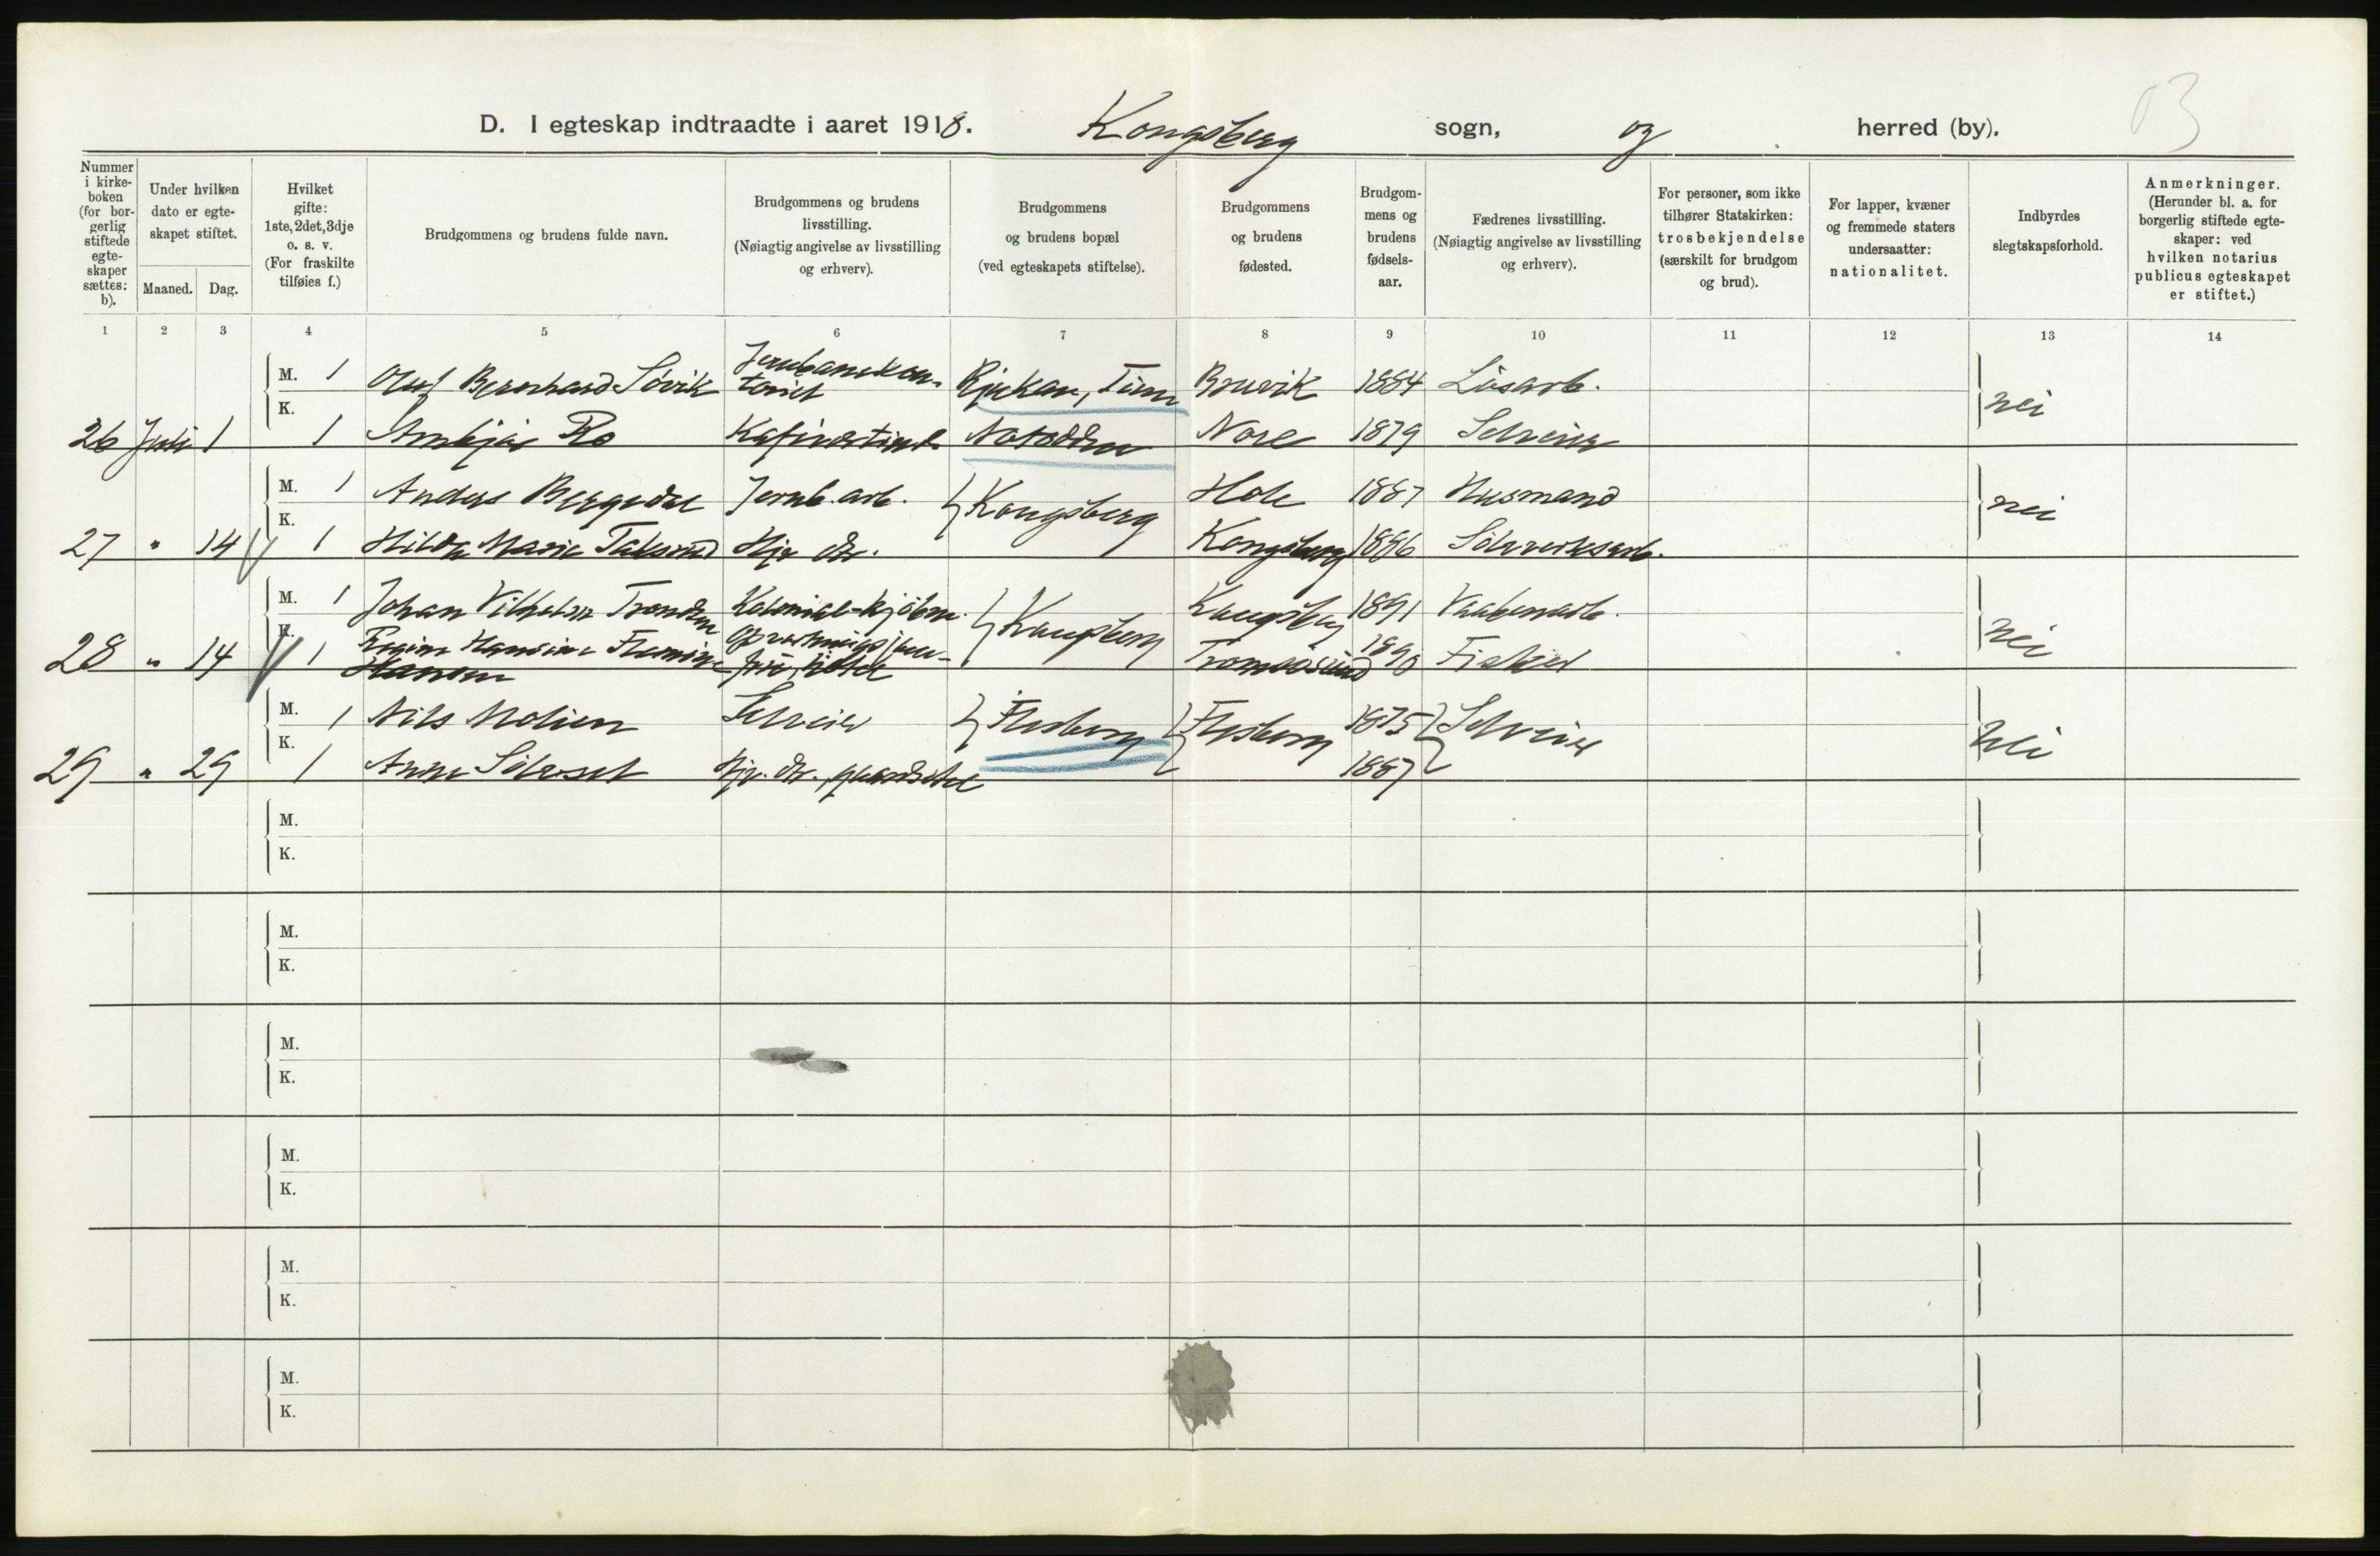 03
D. I egteskap indtraadte i aaret 1918. Kongsberg sogn, og herred (by).
Nummer i kirke-boken (for bor-gerlig stiftede egte-skaper sættes: b).
Under hvilken dato er egte-skapet stiftet.
Maaned. Dag.
Hvilket gifte: 1ste, 2det, 3dje o. s. v. (For fraskilte tilføies f.)
Brudgommens og brudens fulde navn.
Brudgommens og brudens livsstilling. (Nøiagtig angivelse av livsstilling og erhverv).
Brudgommens og brudens bopæl (ved egteskapets stiftelse).
Brudgommens og brudens fødested.
Brudgom-mens og brudens fødsels-aar.
Fædrenes livsstilling. (Nøiagtig angivelse av livsstilling og erhverv).
For personer, som ikke tilhører Statskirken: trosbekjendelse (særskilt for brudgom og brud).
For lapper, kvæner og fremmede staters undersaatter: nationalitet.
Indbyrdes slegtskapsforhold.
Anmerkninger. (Herunder bl. a. for borgerlig stiftede egte-skaper: ved hvilken notarius publicus egteskapet er stiftet.)
1 2 3 4 5 6 7 8 9 10 11 12 13 14
M. 1 Oluf Bernhard Søvik Rjukan, Tinn Bruvik 1884 Løsarb. nei
26 Juli 1 K. 1 Ro Notodden Nore 1879 Selveier
M. 1 Anders Jernb. arb. Kongsberg Hole 1887 Husmand nei
27 " 14 K. 1 Hilda Marie Hjv. dtr. Kongsberg 1886 Sølvverksarb.
M. 1 Johan Vilhelm Kolonial-kjøbm. Kongsberg Kongsberg 1891 Vaabenarb. nei
28 " 14 K. 1 Regine Hansine Flemine Hansen hotel Tromsøsund 1890 Fisker
M. 1 Nils Molien Selveier Flesberg Flesberg 1875 Selveier nei
29 " 29 K. 1 Anne Hjv. dtr., 1887
M.
K.
M.
K.
M.
K.
M.
K.
M.
K.
M.
K.